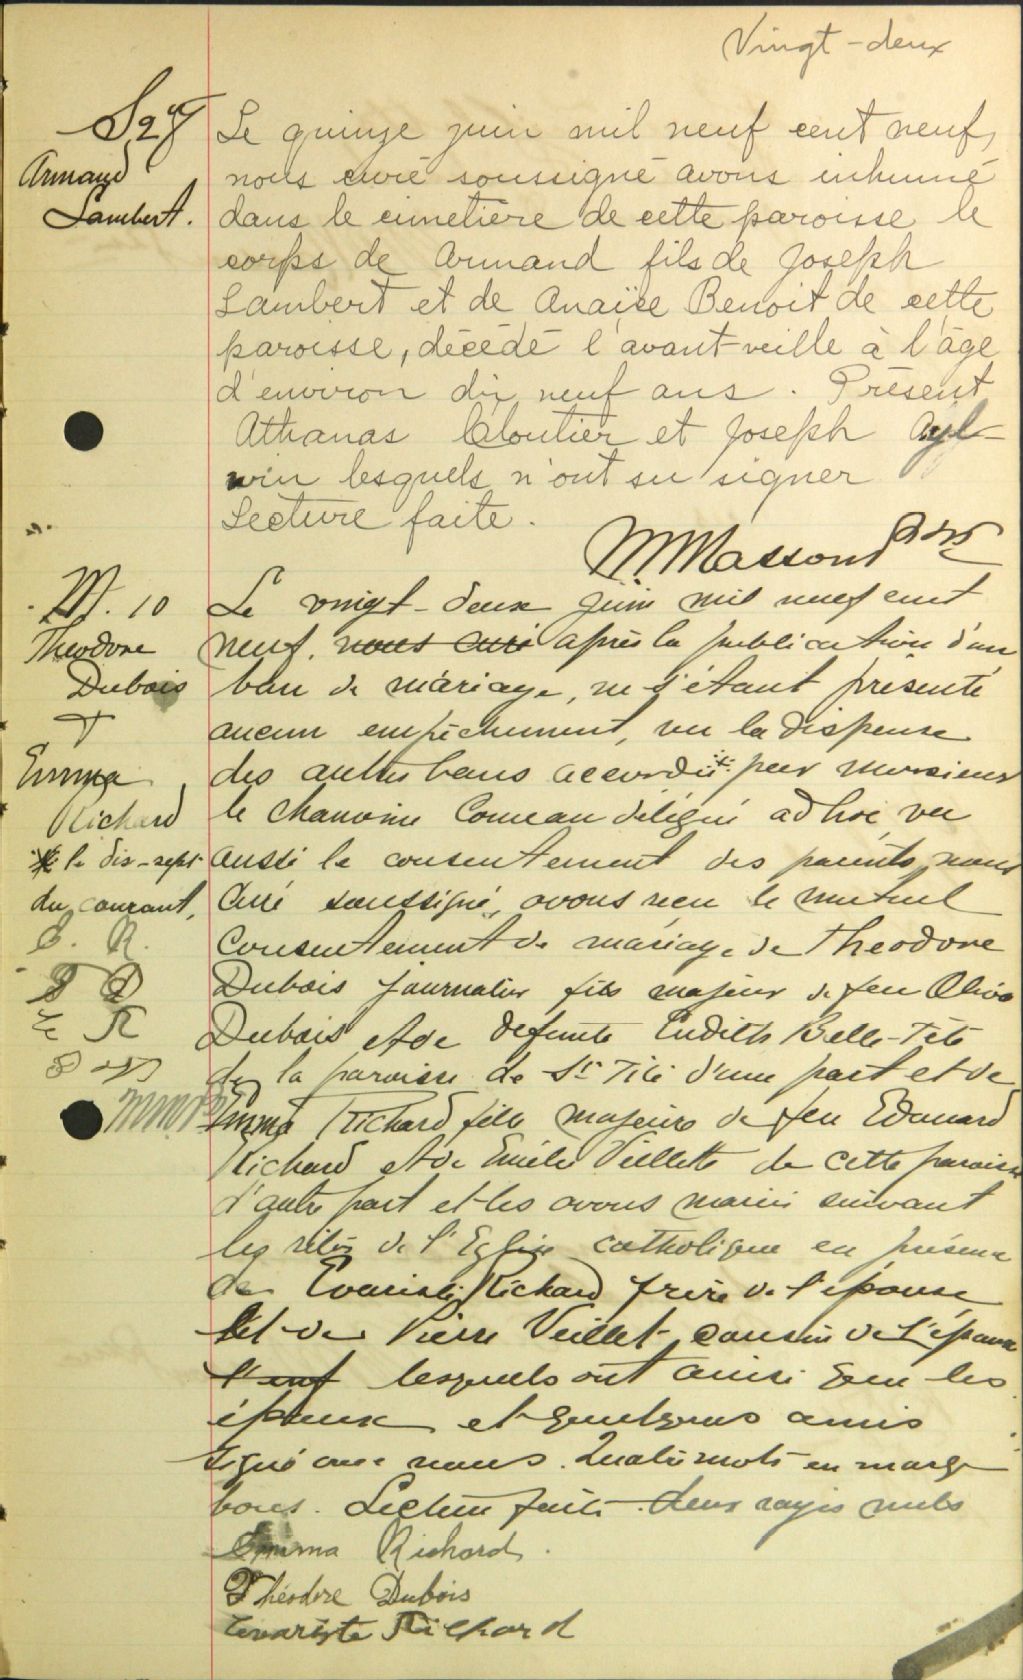 Vingt-deux
S 27
Armand
Lambert.
Le quinze juin mil neuf cent neuf,
nous curé soussigné avons inhumé
dans le cimetière de cette paroisse le
corps de Armand fils de Joseph
Lambert et de Anaïse Benoit de cette
paroisse, décédé l'avant-veille à l'âge
d'environ dix neuf ans. Présent
Athanas Cloutier et Joseph Ayl-
win lesquels n'ont su signer
Lecture faite.
M. 10
Theodore
Dubois
+
Emma
Richard
* le dix-sept
du courant,
E. R.
T D
E R
Le vingt-deux juin mil neuf cent
neuf. nous curé après la publication d'un
ban de mariage, ne s'étant présenté
aucun empêchement, vu la dispense
des autres bans accordée * par Monsieur
le chanoine Comeau délégué ad hoc, vu
aussi le consentement des parents, nous
Curé soussigné, avons reçu le mutuel
Consentement de mariage de Theodore
Dubois journalier fils majeur de feu
Dubois et de defunte Judith Belle-Tête
de la paroisse de St Tite d'une part et de
Emma Richard fille majeure de feu Edouard
Richard et de Emélie Veillette de cette paroisse
d'autre part et les avons mariés suivant
les rites de l'Eglise catholique en présence
de Evariste Richard frère de l'épouse
et de Pierre Veillet cousin de l'épouse
lesquels ont ainsi que les
époux et quelques amis
signé avec nous. Quatre mots en marge
bons. Lecture faite. deux rayés nuls
Emma Richard.
Théodore Dubois
Evariste Richard